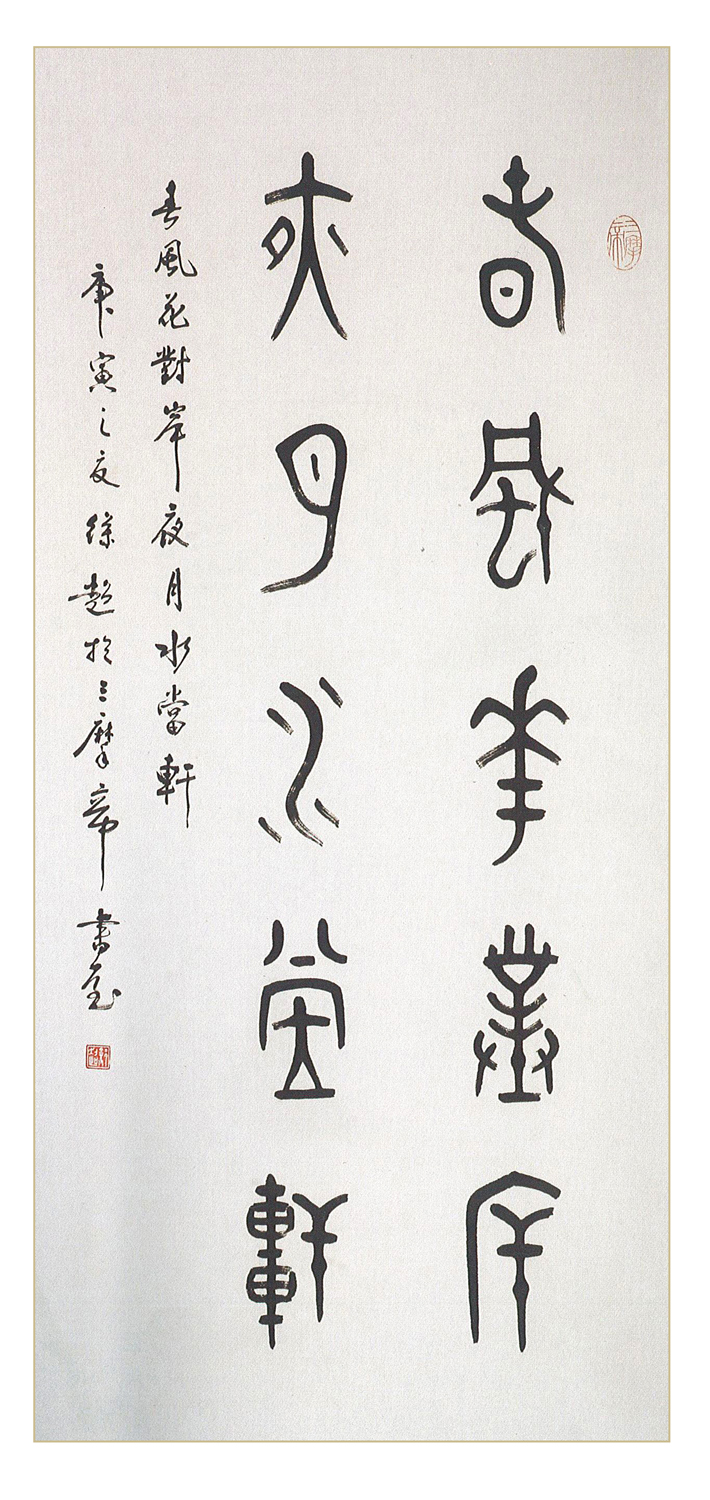 春風華對岸
夜月水當軒
春風花對岸夜月水當軒
庚寅之夏徐超於三摩帝書室